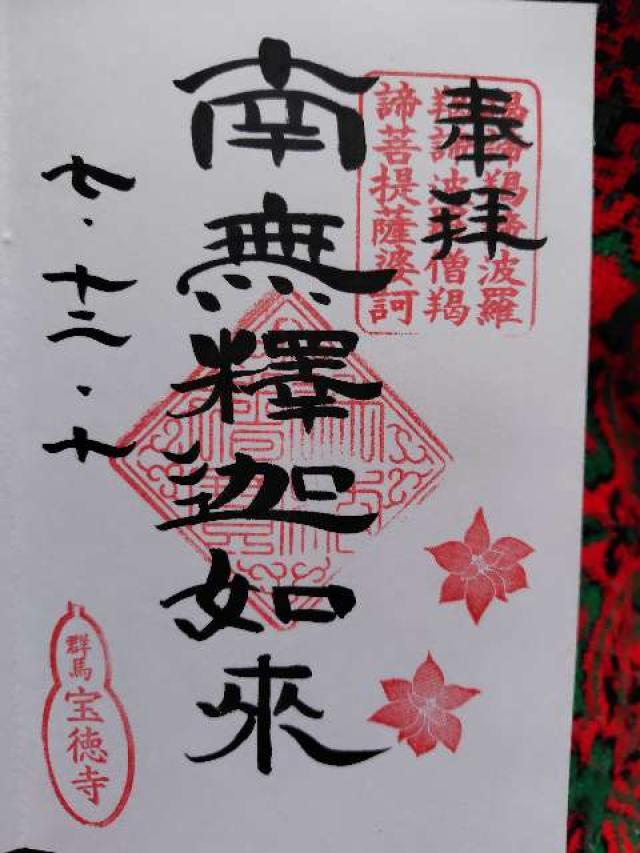 奉拝
羯諦羯諦波羅
羯諦波羅僧羯
諦菩提薩婆訶
南無釋迦如來
七・十二・十
群馬
宝徳寺